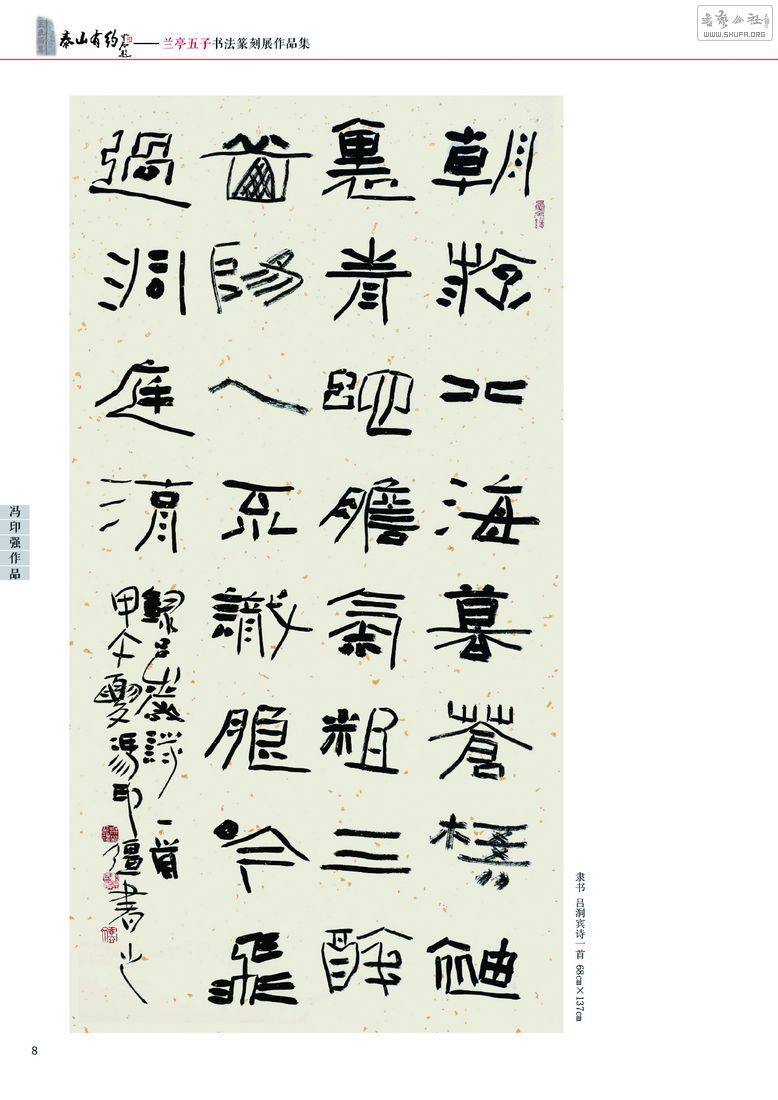 泰山有约——兰亭五子书法篆刻展作品集
WWW.SHUFA.ORG
朝游北海暮蒼梧袖
裏青蛇膽氣粗三醉
岳陽人不識朗吟飛
過洞庭湖
錄吕嵓詩一首
甲午夏馮印彊書也
冯印强作品
隶书 吕洞宾诗一首 68cm×137cm
8